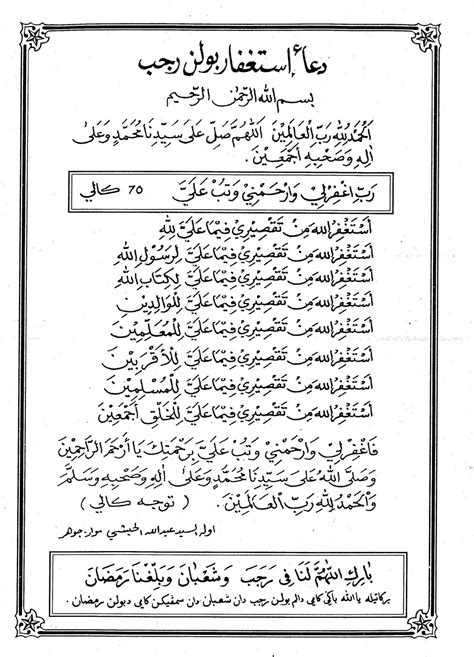 دعاء إستغفار بولن رجب
بسم الله الرحمن الرحيم
اَلْحَمْدُ لِلّٰهِ رَبِّ الْعَالَمِيْنَ اَللّٰهُمَّ صَلِّ عَلَى سَيِّدِنَا مُحَمَّدٍ وَعَلَى
اٰلِهِ وَصَحْبِهِ أَجْمَعِيْنَ .
رَبِّ اغْفِرْلِيْ وَارْحَمْنِيْ وَتُبْ عَلَيَّ 70 كالي
أَسْتَغْفِرُ اللهَ مِنْ تَقْصِيْرِيْ فِيْمَا عَلَيَّ لِلّٰهِ
أَسْتَغْفِرُ اللهَ مِنْ تَقْصِيْرِيْ فِيْمَا عَلَيَّ لِرَسُوْلِ اللهِ
أَسْتَغْفِرُ اللهَ مِنْ تَقْصِيْرِيْ فِيْمَا عَلَيَّ لِكِتَابِ اللهِ
أَسْتَغْفِرُ اللهَ مِنْ تَقْصِيْرِيْ فِيْمَا عَلَيَّ لِلْوَالِدَيْنِ
أَسْتَغْفِرُ اللهَ مِنْ تَقْصِيْرِيْ فِيْمَا عَلَيَّ لِلْمُعَلِّمِيْنَ
أَسْتَغْفِرُ اللهَ مِنْ تَقْصِيْرِيْ فِيْمَا عَلَيَّ لِلْأَقْرَبِيْنَ
أَسْتَغْفِرُ اللهَ مِنْ تَقْصِيْرِيْ فِيْمَا عَلَيَّ لِلْمُسْلِمِيْنَ
أَسْتَغْفِرُ اللهَ مِنْ تَقْصِيْرِيْ فِيْمَا عَلَيَّ لِلْخَلْقِ أَجْمَعِيْنَ
فَاغْفِرْلِيْ وَارْحَمْنِيْ وَتُبْ عَلَيَّ بِرَحْمَتِكَ يَا أَرْحَمَ الرَّاحِمِيْنَ
وَصَلَّى اللهُ عَلَى سَيِّدِنَا مُحَمَّدٍ وَعَلَى اٰلِهِ وَصَحْبِهِ وَسَلَّمَ
وَالْحَمْدُ لِلّٰهِ رَبِّ الْعَالَمِيْنَ . ( توجه كالي )
اوله السيد عبدالله الحبشي موار، جوهر
بَارِكِ اللّٰهُمَّ لَنَا فِيْ رَجَبَ وَشَعْبَانَ وَبَلِّغْنَا رَمَضَانَ
بركاتيله يا الله باݢي كامي دالم بولن رجب دان شعبان دان سمڤيكن كامي دبولن رمضان .